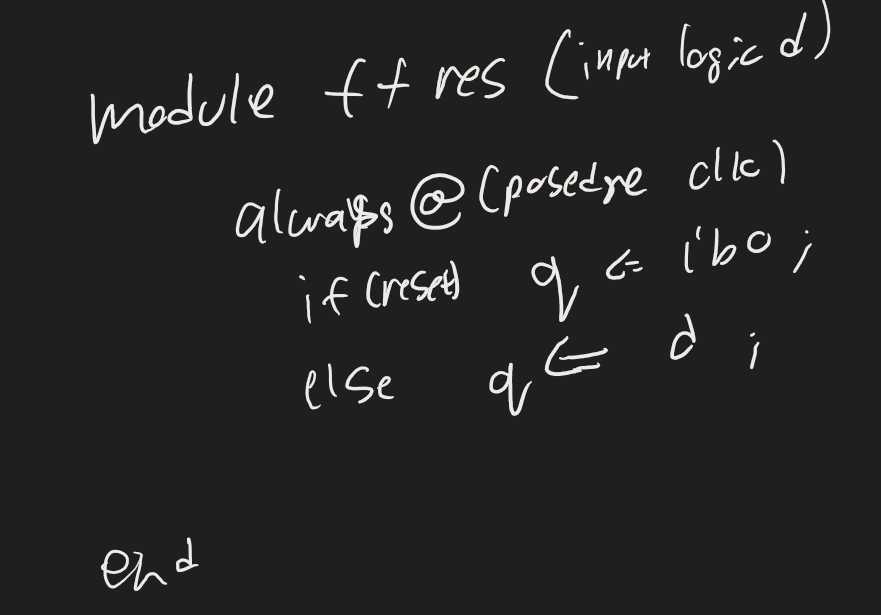 module ff res (input logic d)
always @ (posedge clk)
if (reset) q <= 1'b0 ;
else q <= d ;
end